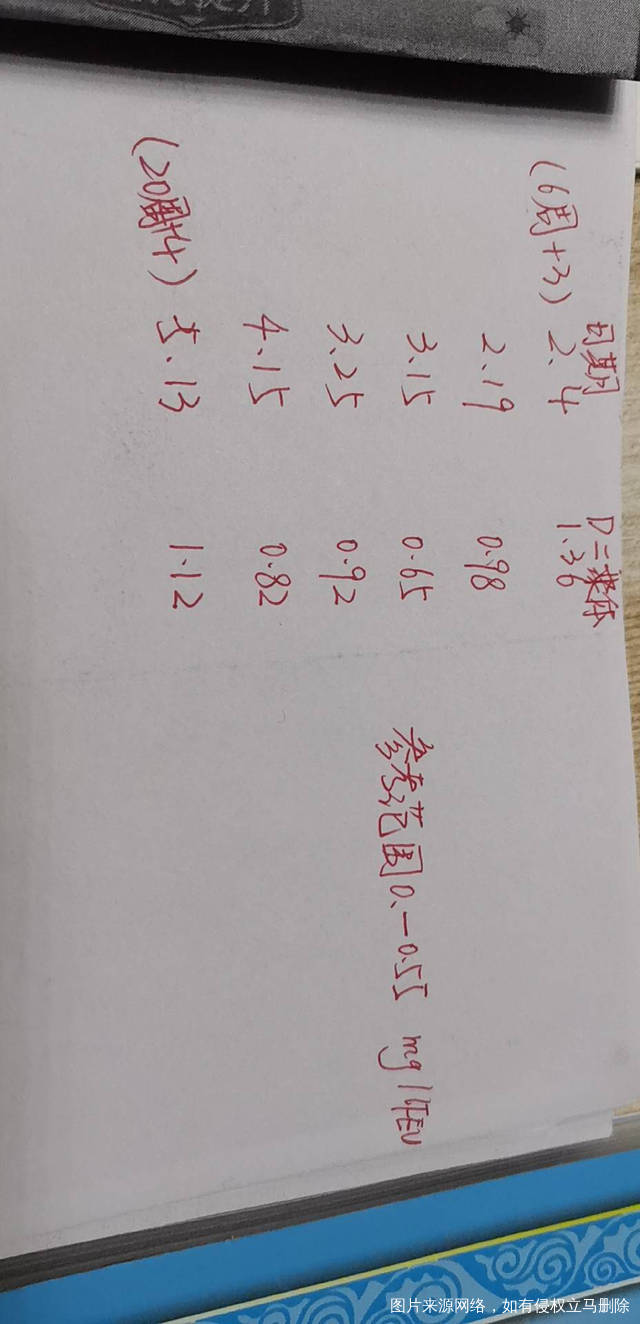 日期 D二聚体
(6周+3) 2.4 1.36
2.19 0.98
3.15 0.65
3.25 0.92
4.15 0.82
(20周+4) 5.13 1.12
参考范围0.-0.55 mg/LFEU
图片来源网络，如有侵权立马删除